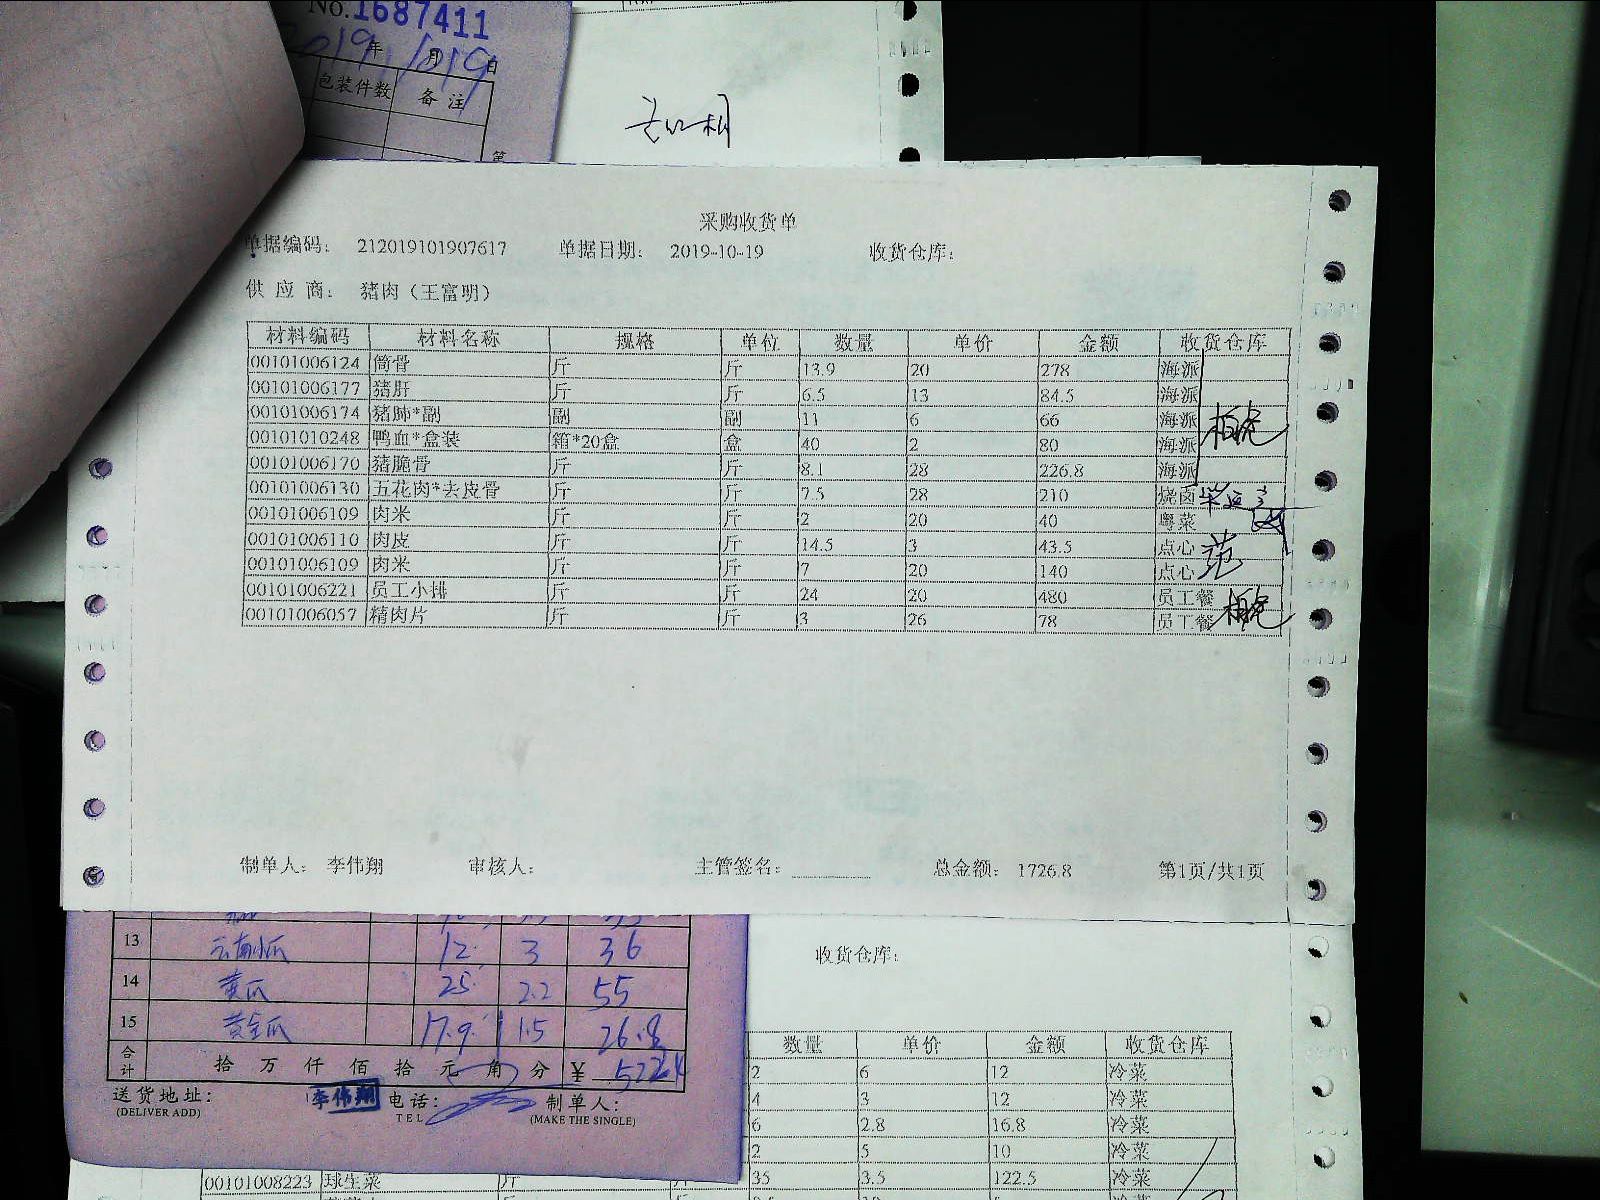 No.1687411
2019年10月19日
包装件数 备注
采购收货单
单据编码： 212019101907617 单据日期： 2019-10-19 收货仓库：
供应商： 猪肉（王富明）
材料编码 材料名称 规格 单位 数量 单价 金额 收货仓库
00101006124 筒骨 斤 斤 13.9 20 278 海派
00101006177 猪肝 斤 斤 6.5 13 84.5 海派
00101006174 猪肺*副 副 副 11 6 66 海派
00101010248 鸭血*盒装 箱*20盒 盒 40 2 80 海派
00101006170 猪脆骨 斤 斤 8.1 28 226.8 海派
00101006130 五花肉*去皮骨 斤 斤 7.5 28 210 烧卤
00101006109 肉米 斤 斤 2 20 40 粤菜
00101006110 肉皮 斤 斤 14.5 3 43.5 点心
00101006109 肉米 斤 斤 7 20 140 点心
00101006221 员工小排 斤 斤 24 20 480 员工餐
00101006057 精肉片 斤 斤 3 26 78 员工餐
制单人： 李伟翔 审核人： 主管签名： 总金额： 1726.8 第1页/共1页
13 云南小瓜 12. 3 36
14 黄瓜 25. 2.2 55
15 黄金瓜 17.9 1.5 26.8
合计 拾 万 仟 佰 拾 元 角 分 ¥ 522.4
送货地址： 李伟翔 电话： 制单人：
(DELIVER ADD) TEL (MAKE THE SINGLE)
收货仓库：
数量 单价 金额 收货仓库
2 6 12 冷菜
4 3 12 冷菜
6 2.8 16.8 冷菜
2 5 10 冷菜
00101008223 球生菜 斤 35 3.5 122.5 冷菜